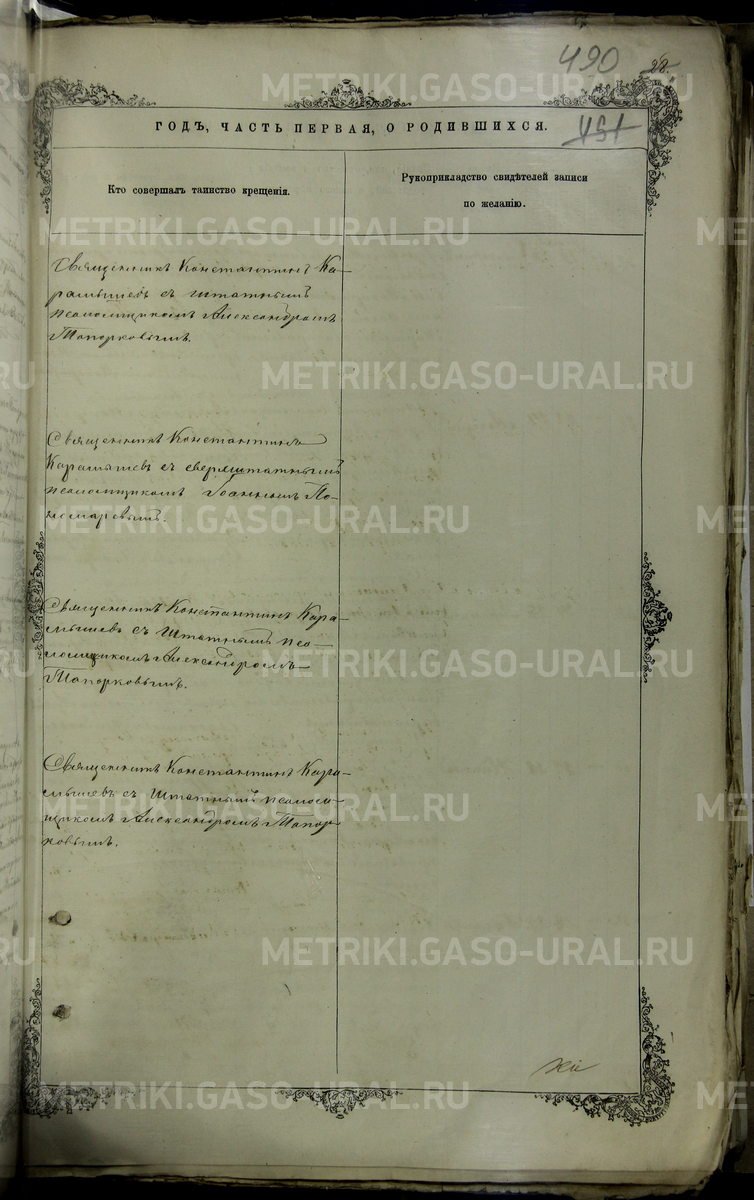 490
28.
ГОДЪ, ЧАСТЬ ПЕРВАЯ, О РОДИВШИХСЯ.
451
Кто совершалъ таинство крещенія.
Рукоприкладство свидѣтелей записи
по желанію.
Священникъ Константинъ Ка-
рамышевъ съ штатнымъ
псаломщикомъ Александромъ
Топорковымъ.
Священникъ Константинъ
Карамышевъ съ сверхштатнымъ
псаломщикомъ Іоанномъ По-
номаревымъ.
Священникъ Константинъ Кара-
мышевъ съ штатнымъ пса-
ломщикомъ Александромъ
Топорковымъ.
Священникъ Константинъ Кара-
мышевъ съ штатнымъ псалом-
щикомъ Александромъ Топор-
ковымъ.
METRIKI.GASO-URAL.RU
METRIKI.GASO-URAL.RU
METRIKI.GASO-URAL.RU
METRIKI.GASO-URAL.RU
METRIKI.GASO-URAL.RU
METRIKI.GASO-URAL.RU
METRIKI.GASO-URAL.RU
METRIKI.GASO-URAL.RU